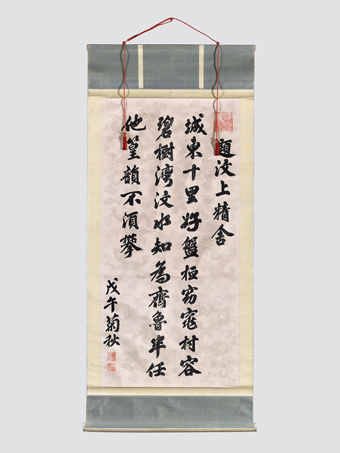 题汶上精舍
城東十里好盤桓窈窕村容
碧樹灣汶水知為齊魯半任
他篁韻不須攀
戊午菊秋